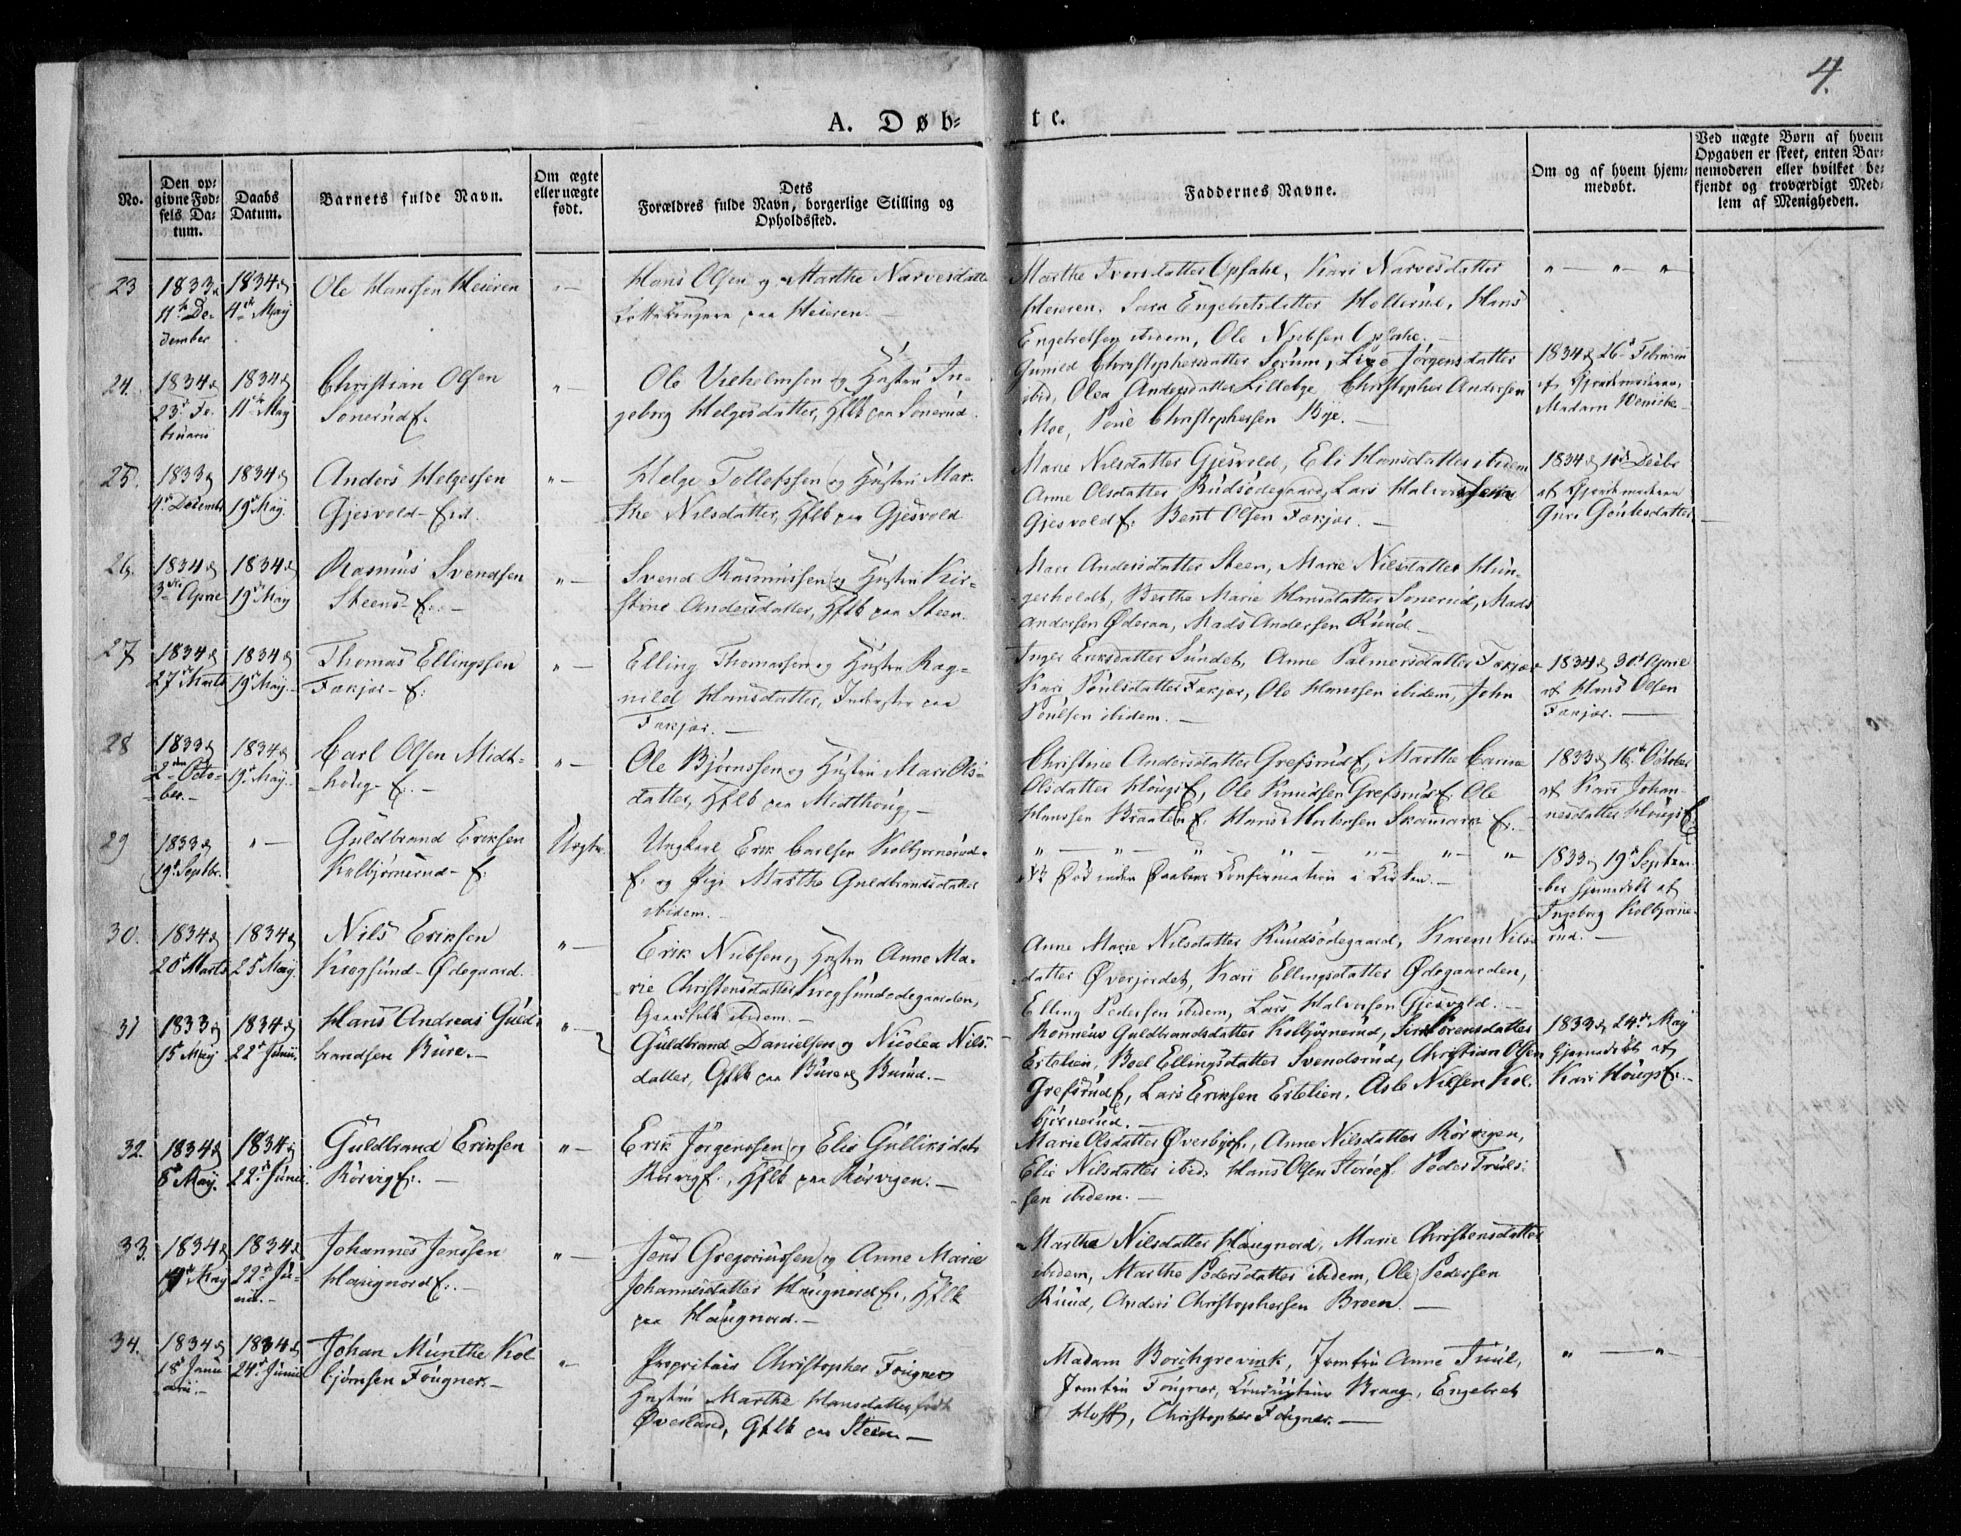 4.
A. Døb=te.
No.
Den op=
givne Fød=
sels Da=
tum.
Daabs
Datum.
Barnets fulde Navn.
Om ægte
eller uægte
født.
Dets
Forældres fulde Navn, borgerlige Stilling og
Opholdssted.
Faddernes Navne.
Om og af hvem hjem=
medøbt.
Ved uægte Børn af hvem
Opgaven er skeet, enten Bar=
nemoderen eller hvilket be=
kjendt og troværdigt Med=
lem af Menigheden.
23
1833
11te De-
cember
1834
4de May
Ole Hanssen Heieren
Hans Olsen og Marthe Narvesdatter
paa Heieren.
Marthe Iversdatter Opsahl, Kari Narvesdatter
Heieren, Sara Engebretsdatter Hollerud, Hans
Engebretsen ibidem, Ole Nubsen Opsahl.
24.
1834
23d Fe-
bruarii
1834
11te May
Christian Olsen
Sonerud E.
Ole Vilholmsen og Hustru In-
geborg Helgesdatter, Hflk paa Sonerud
Gunild Christophersdatter Sørum, Lise Jørgensdatter
ibid, Olea Andersdatter Lillebye, Christopher Andersen
Moe, Poul Christophersen Bye.
1834 26d Februarii
af Gjordemoderen,
Madam Wenicke
25.
1833
4d Decembr
1834
19d May.
Anders Helgessen
Gjesvold-Eid.
Helge Tollefssen og Hustru Mar-
the Nilsdatter, Hflk paa Gjesvold
Marie Nilsdatter Gjesvold, Eli Hansdatter ibidem
Anne Olsdatter Rudsødegaard, Lars Halvorsen
Gjesvold E. Bent Olsen Fækjær.
1834 10d Decbr
af Gjordemoderen
Guri Goutesdatter
26.
1834
3die April
1834
19d May
Rasmus Svendsen
Steens-E.
Svend Rasmussen og Hustru Kir-
stine Andersdatter, Hflk paa Steen.
Mari Andersdatter Steen, Marie Nilsdatter Hun-
gerholdt, Berthe Marie Hansdatter Sonerud, Mads
Andersen Øderaa, Mads Andersen Ruud
27
1834
27d Marts
1834
19d May.
Thomas Ellingssen
Fækjær-E.
Elling Thomassen og Hustru Rag-
nild Hansdatter, Inderster paa
Fækjær.
Inger Eriksdatter Sundet, Anne Palmersdatter Fækjær
Kari Poulsdatter Fækjær, Ole Hanssen ibidem, John
Poulsen ibidem.
1834 30d April
af Hans Olsen
Fækjær.
28
1833
2den Octo-
ber.
1834
19d May.
Carl Olsen Midt-
houg-E.
Ole Bjørnssen og Hustru Mari Ols-
datter, Hflk paa Midthoug,
Christine Andersdatter Grefsrud E, Marthe Carine
Olsdatter Hougs E, Ole Knudsen Grefsrud E. Ole
Hanssen Braaten E. Hans Skamark E.
1833 16. October
af Kari Johan-
nesdatter Hougs E
29
1833
19d Septbr.
Guldbrand Eriksen
Kolbjørnerud-E.
Uægte
Ungkarl Erik Carlsen Kolbjørnerud-
E. og Pige Marthe Guldbrandsdatter
ibidem.
NB Død inden Daabens Confirmation i Kirken.
1833 19d Septem-
ber hjemmedøbt af
Ingeborg Kolbjørne-
rud.
30.
1834
20d Marts
1834
25d May.
Nils Eriksen
Krogsund-Ødegaard.
Erik Nubsen og Hustru Anne Ma-
rie Christensdatter Krogsundødegaarden,
Gaardfolk ibidem.
Anne Marie Nilsdatter Ruudsødegaard, Karen Nils-
datter Øverjordet, Kari Ellingsdatter Ødegaarden,
Elling Pedersen ibidem, Lars Halvorsen Gjesvold.
31
1833
15d May
1834
22d Junii.
Hans Andreas Guld-
brandsen Bure.
Guldbrand Danielsen og Nicolea Nils-
datter, Gflk paa Bure Burud.
Ronneus Guldbrandsdatter Kolbjørnerud, Siri Sørensdatter
Ertelien, Boel Ellingsdatter Svendsrud, Christian Olsen
Grefsrud E, Lars Eriksen Ertelien, Asle Nilsen Kol-
bjørnerud.
1833 24d May
hjemmedøbt af
Kari Hougs E.
32.
1834
8d May.
1834
22d Junii.
Guldbrand Eriksen
Rørvig E.
Erik Jørgenssen og Elie Gulliksdatr
Rørvig E., Hflk paa Rørvigen.
Marie Olsdatter Øverbye E., Anne Nilsdatter Rørvigen,
Elie Nilsdatter ibid, Hans Olsen Storøe E. Peder Truls-
sen ibidem.
33.
1834
May
1834
22d Ju-
nii.
Johannes Jenssen
Haugnord E.
Jens Gregoriussen og Anne Marie
Johannesdatter Haugnord E., Hflk
paa Haugnord.
Marthe Nilsdatter Haugnord, Marie Christensdatter
ibidem, Marthe Pedersdatter ibidem, Ole Pedersen
Ruud, Anders Christophersen Broen.
34.
1834
18d Janu
arii.
1834
24d Junii
Johan Munthe Kol
bjørnsen Fougner.
Propritair Christopher Fougner
Hustru Marthe Hansdatter, født
Øverland, Gflk paa Steen.
Madam Borchgrevink, Jomfru Anne Juul,
Jomfru Fougner, Braag, Engebret
Hoff, Christopher Fougner.